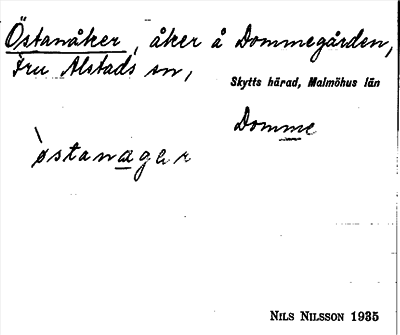 Östanåker, åker å Dommegården,
Fru Alstads sn,
Skytts härad, Malmöhus län
Domme
østanagər
NILS NILSSON 1935